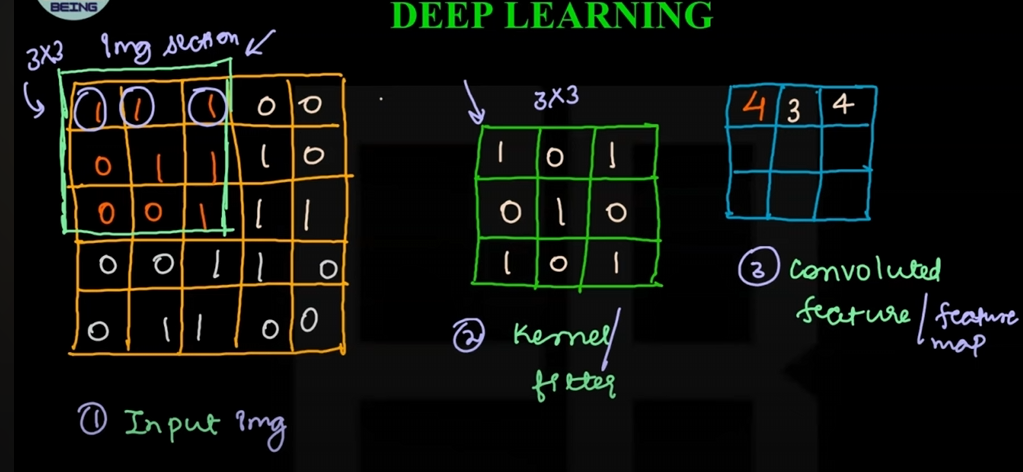 BEING
DEEP LEARNING
3×3 Img section
1 1 1 0 0
0 1 1 1 0
0 0 1 1 1
0 0 1 1 0
0 1 1 0 0
① Input img
3×3
1 0 1
0 1 0
1 0 1
② Kernel/
filter
4 3 4
③ Convoluted
feature/feature
map